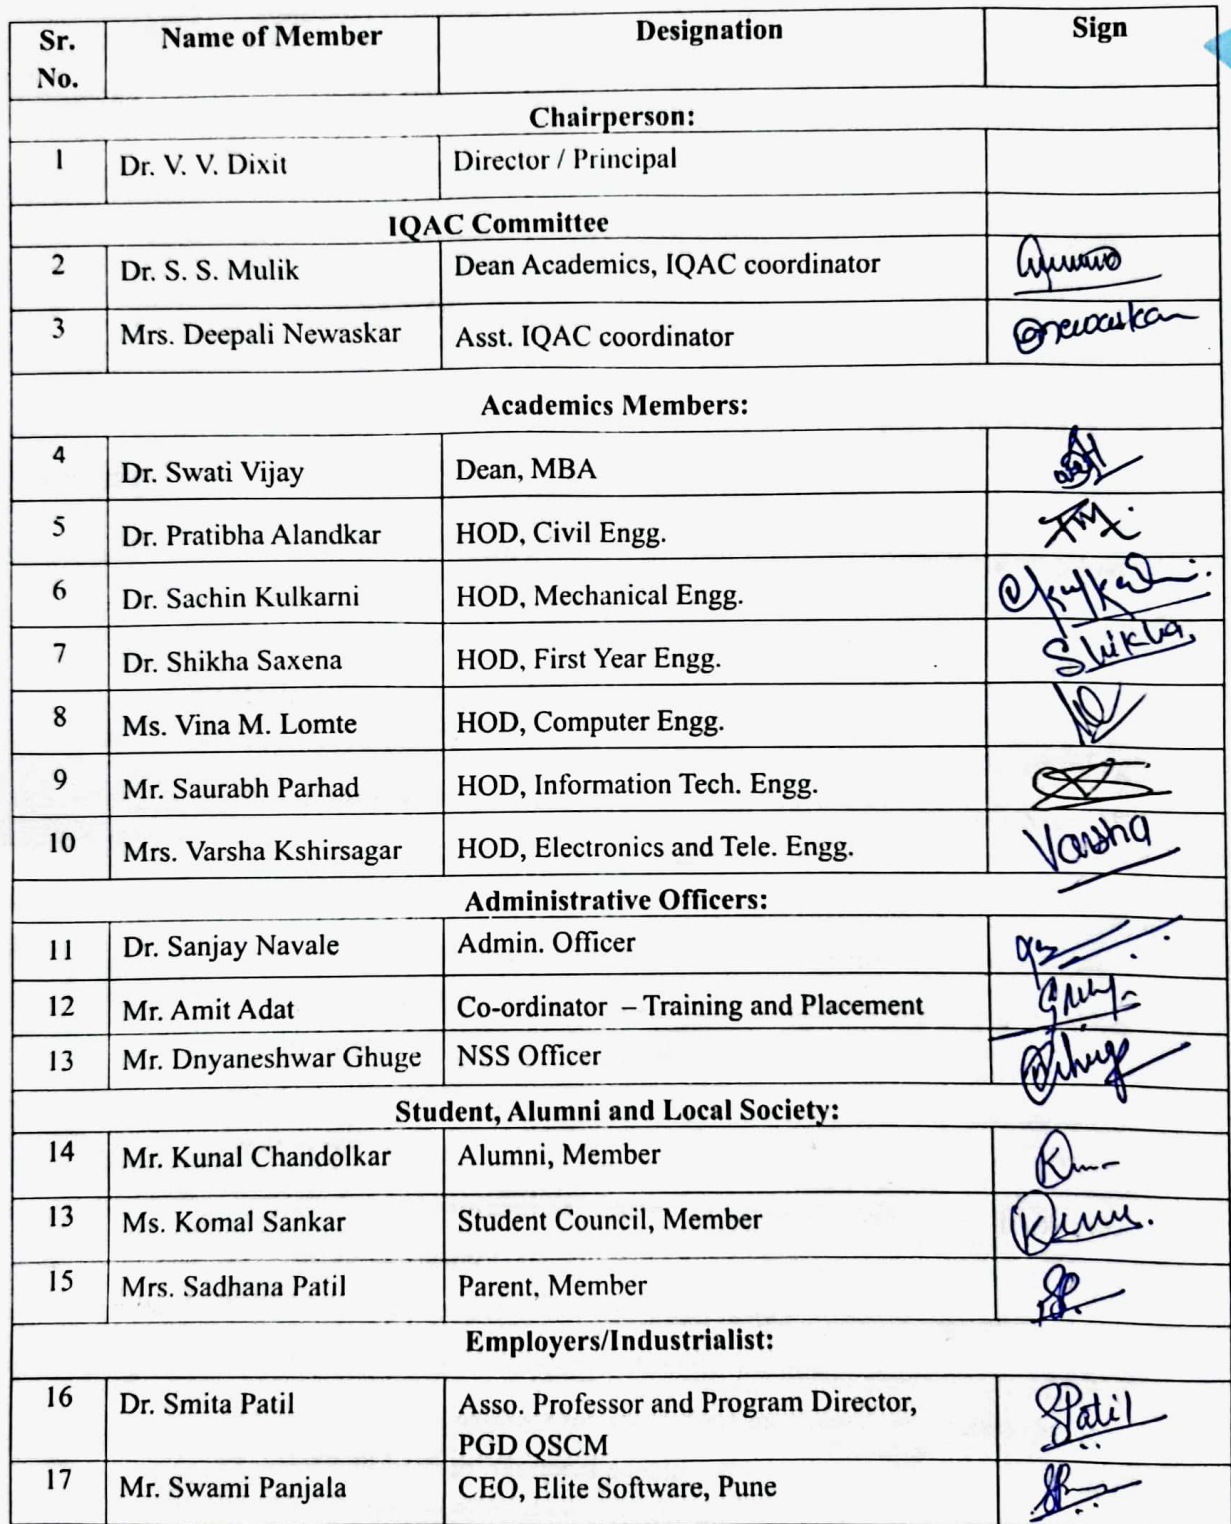 Sr. No. Name of Member Designation Sign
Chairperson:
1 Dr. V. V. Dixit Director / Principal
IQAC Committee
2 Dr. S. S. Mulik Dean Academics, IQAC coordinator
3 Mrs. Deepali Newaskar Asst. IQAC coordinator Newaskar
Academics Members:
4 Dr. Swati Vijay Dean, MBA
5 Dr. Pratibha Alandkar HOD, Civil Engg.
6 Dr. Sachin Kulkarni HOD, Mechanical Engg.
7 Dr. Shikha Saxena HOD, First Year Engg. Shikha
8 Ms. Vina M. Lomte HOD, Computer Engg.
9 Mr. Saurabh Parhad HOD, Information Tech. Engg.
10 Mrs. Varsha Kshirsagar HOD, Electronics and Tele. Engg. Varsha
Administrative Officers:
11 Dr. Sanjay Navale Admin. Officer
12 Mr. Amit Adat Co-ordinator – Training and Placement
13 Mr. Dnyaneshwar Ghuge NSS Officer
Student, Alumni and Local Society:
14 Mr. Kunal Chandolkar Alumni, Member
13 Ms. Komal Sankar Student Council, Member
15 Mrs. Sadhana Patil Parent, Member
Employers/Industrialist:
16 Dr. Smita Patil Asso. Professor and Program Director, SPatil
PGD QSCM
17 Mr. Swami Panjala CEO, Elite Software, Pune